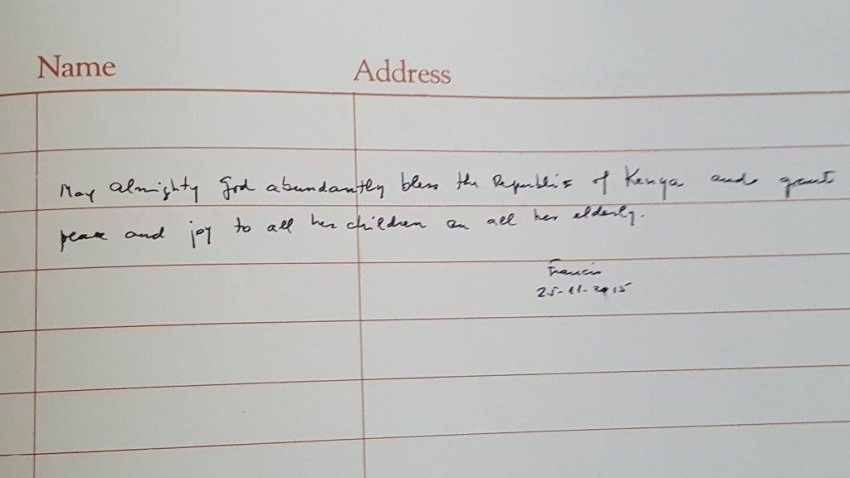 Name Address
May almighty God abundantly bless the Republic of Kenya and grant
peace and joy to all her children an all her elderly.
Francis
25-11-2015